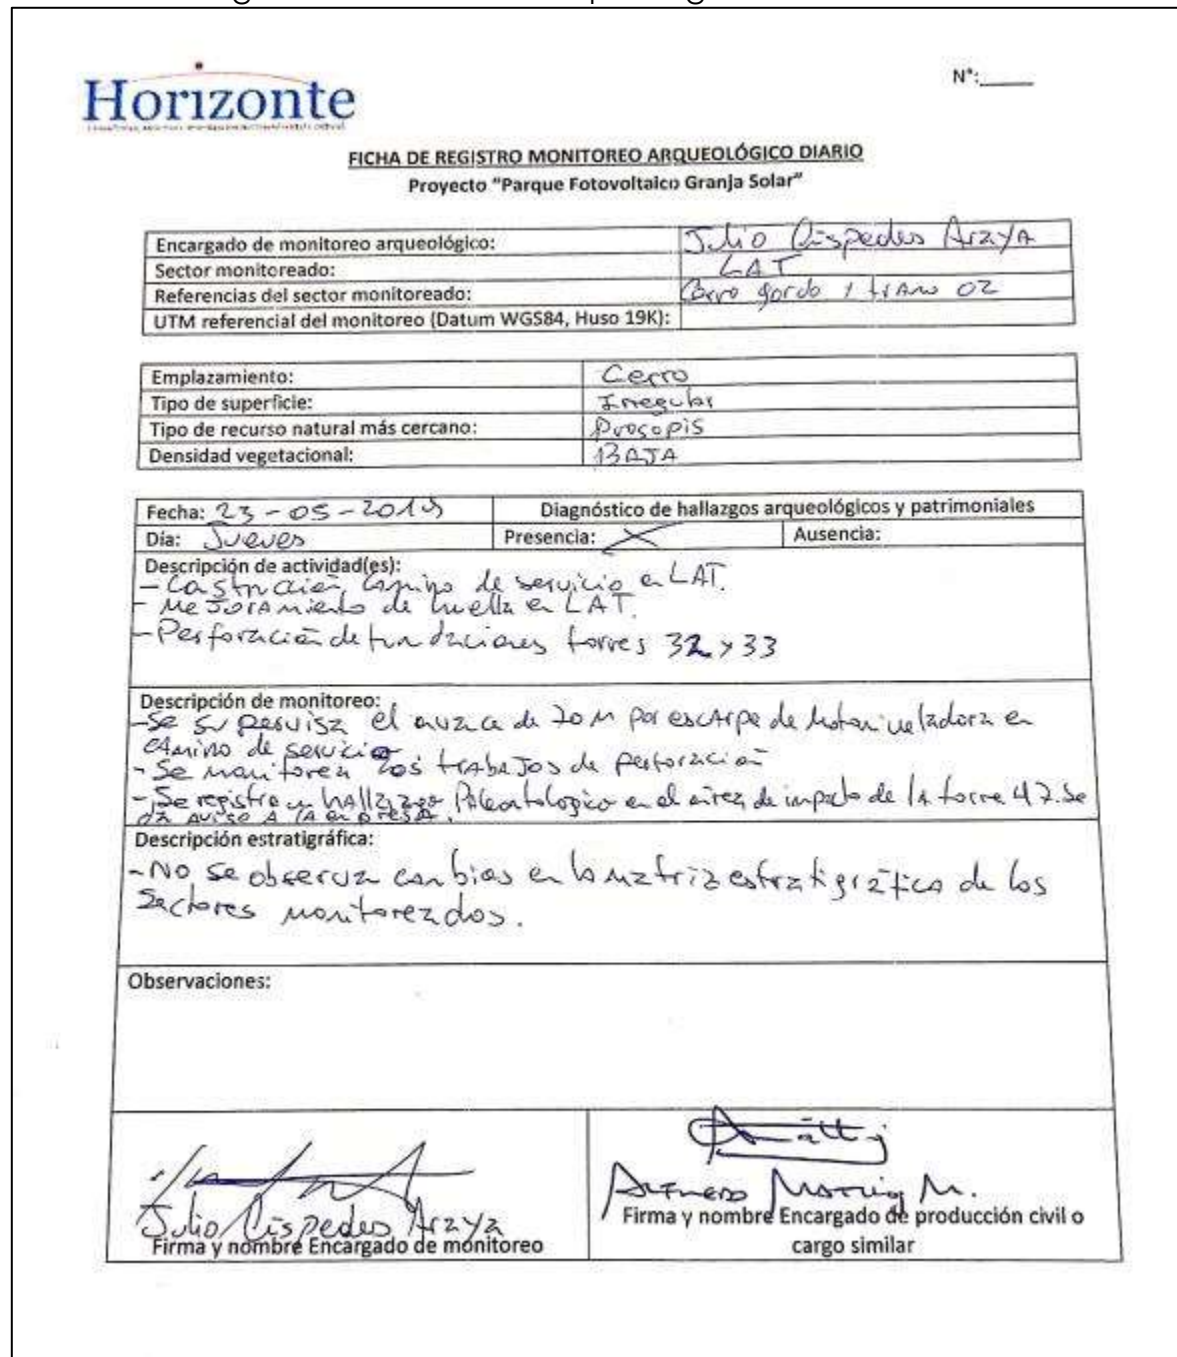 Horizonte
N°:____
FICHA DE REGISTRO MONITOREO ARQUEOLÓGICO DIARIO
Proyecto "Parque Fotovoltaico Granja Solar"
Encargado de monitoreo arqueológico: Julio Cispedes Araya
Sector monitoreado: LAT
Referencias del sector monitoreado: Cerro gordo / tramo 02
UTM referencial del monitoreo (Datum WGS84, Huso 19K):
Emplazamiento: Cerro
Tipo de superficie: Irregular
Tipo de recurso natural más cercano: Prosopis
Densidad vegetacional: BAJA
Fecha: 23-05-2019 Diagnóstico de hallazgos arqueológicos y patrimoniales
Día: Jueves Presencia: X Ausencia:
Descripción de actividad(es):
- Costrucción camino de servicio en LAT.
- Mejoramiento de huella en LAT.
- Perforación de fundaciones torres 32 y 33
Descripción de monitoreo:
- Se supervisa el avance de 70 m por escarpe de motoniveladora en
camino de servicio
- Se monitorea los trabajos de perforación
- Se registra un hallazgo Paleontologico en el área de impacto de la torre 47. Se
da aviso a la empresa.
Descripción estratigráfica:
- No se observa cambios en la matriz estratigráfica de los
Sectores monitoreados.
Observaciones:
Julio Cispedes Araya
Firma y nombre Encargado de monitoreo
Alfredo M.
Firma y nombre Encargado de producción civil o
cargo similar